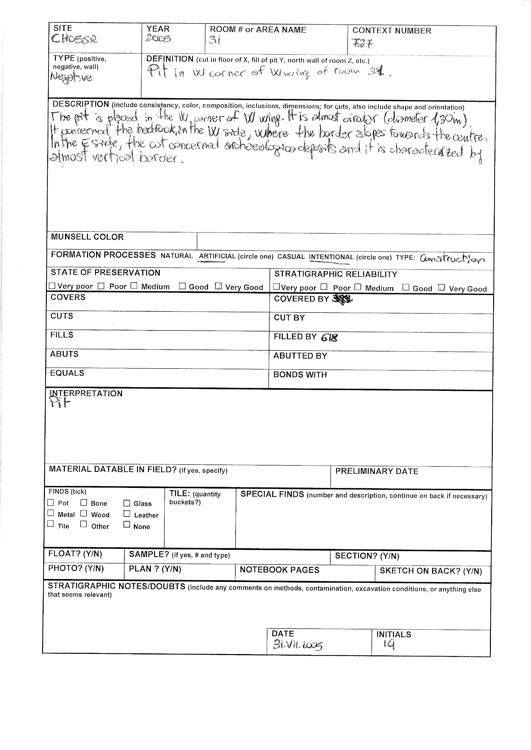 SITE
CHO5SR
YEAR
2005
ROOM # or AREA NAME
31
CONTEXT NUMBER
727
TYPE (positive, negative, wall)
Negative
DEFINITION (cut in floor of X, fill of pit Y, north wall of room Z, etc.)
Pit in W corner of W wing of room 31.
DESCRIPTION (include consistency, color, composition, inclusions, dimensions; for cuts, also include shape and orientation)
The pit is placed in the W corner of W wing. It is almost circular (diameter 1,30m).
It concerned the bedrock, in the W side, where the border slopes towards the centre.
In the E side, the cut concerned archaeological deposits and it is characterized by
almost vertical border.
MUNSELL COLOR
FORMATION PROCESSES NATURAL ARTIFICIAL (circle one) CASUAL INTENTIONAL (circle one) TYPE: Construction
STATE OF PRESERVATION
☐ Very poor ☐ Poor ☐ Medium ☐ Good ☐ Very Good
STRATIGRAPHIC RELIABILITY
☐ Very poor ☐ Poor ☐ Medium ☐ Good ☐ Very Good
COVERS
COVERED BY
CUTS
CUT BY
FILLS
FILLED BY 618
ABUTS
ABUTTED BY
EQUALS
BONDS WITH
INTERPRETATION
Pit
MATERIAL DATABLE IN FIELD? (if yes, specify)
PRELIMINARY DATE
FINDS (tick)
☐ Pot ☐ Bone ☐ Glass
☐ Metal ☐ Wood ☐ Leather
☐ Tile ☐ Other ☐ None
TILE: (quantity buckets?)
SPECIAL FINDS (number and description, continue on back if necessary)
FLOAT? (Y/N)
SAMPLE? (if yes, # and type)
SECTION? (Y/N)
PHOTO? (Y/N)
PLAN ? (Y/N)
NOTEBOOK PAGES
SKETCH ON BACK? (Y/N)
STRATIGRAPHIC NOTES/DOUBTS (include any comments on methods, contamination, excavation conditions, or anything else
that seems relevant)
DATE
31.VII.2005
INITIALS